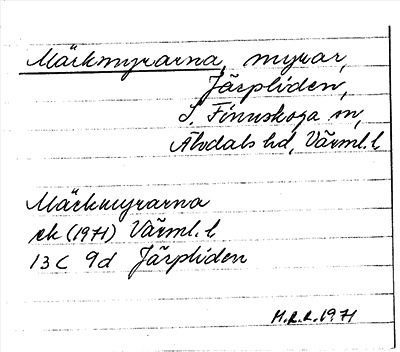 Märkmyrarna, myrar,
Järpliden,
S. Finnskoga sn,
Älvdals hd, Värml. l
Märkmyrarna
ek (1971) Värml. l
13 C 9d Järpliden
H.R.R. 1971